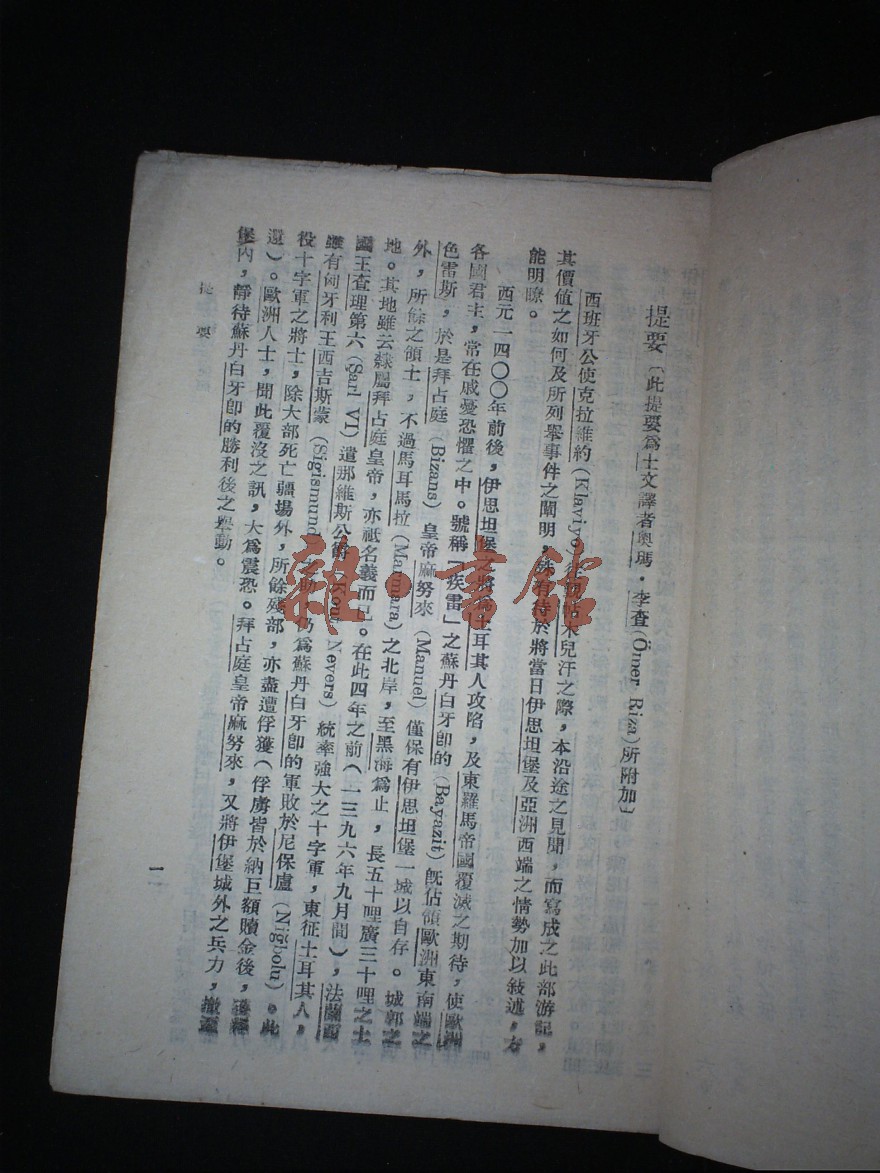 提要〔此提要爲土文譯者奧瑪．李查(Ömer Riza)所附加〕
西班牙公使克拉維約(Klaviyo)往朝帖木兒汗之際，本沿途之見聞，而寫成之此部游記，
其價值之如何及所列舉事件之闡明，殊有待於將當日伊思坦堡及亞洲西端之情勢加以敍述，方
能明瞭。
西元一四〇〇年前後，伊思坦堡之將爲土耳其人攻陷，及東羅馬帝國覆滅之期待，使歐洲
各國君主，常在戚憂恐懼之中。號稱「疾雷」之蘇丹白牙卽的(Bayazit)旣佔領歐洲東南端之
色雷斯，於是拜占庭(Bizans)皇帝麻努來(Manuel)僅保有伊思坦堡一城以自存。城郭之
外，所餘之領土，不過馬耳馬拉(Marmara)之北岸，至黑海爲止，長五十哩廣三十哩之土
地。其地雖云隸屬拜占庭皇帝，亦祇名義而已。在此四年之前（一三九六年九月間），法蘭西
國王查理第六(Şarl VI)遣那維斯公爵(Kont Nevers)統率強大之十字軍，東征土耳其人，
雖有匈牙利王西吉斯蒙(Sigismund)之助，仍爲蘇丹白牙卽的軍敗於尼保盧(Niğbolu)。此
役十字軍之將士，除大部死亡疆場外，所餘殘部，亦盡遭俘獲（俘虜皆於納巨額贖金後，
還）。歐洲人士，聞此覆沒之訊，大爲震恐。拜占庭皇帝麻努來，又將伊堡城外之兵力，撤
堡內，靜待蘇丹白牙卽的勝利後之舉動。
提要
一
雜·書館